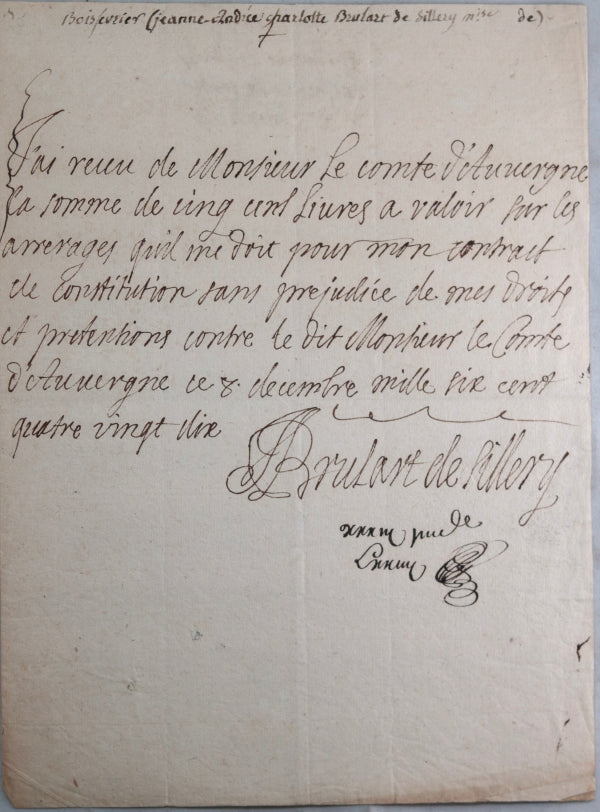 Boisfevrier (jeanne-Andrée charlotte Brulart de Sillery mise de)
J'ai receu de Monsieur Le comte d'Auvergne
la somme de cinq cent Livres a valoir sur les
arrerages quil me doit pour mon contract
de Constitution sans prejudice de mes droits
et pretentions contre le dit Monsieur le Comte
d'Auvergne ce 8. decembre mille six cent
quatre vingt dix
Brulart de Sillery